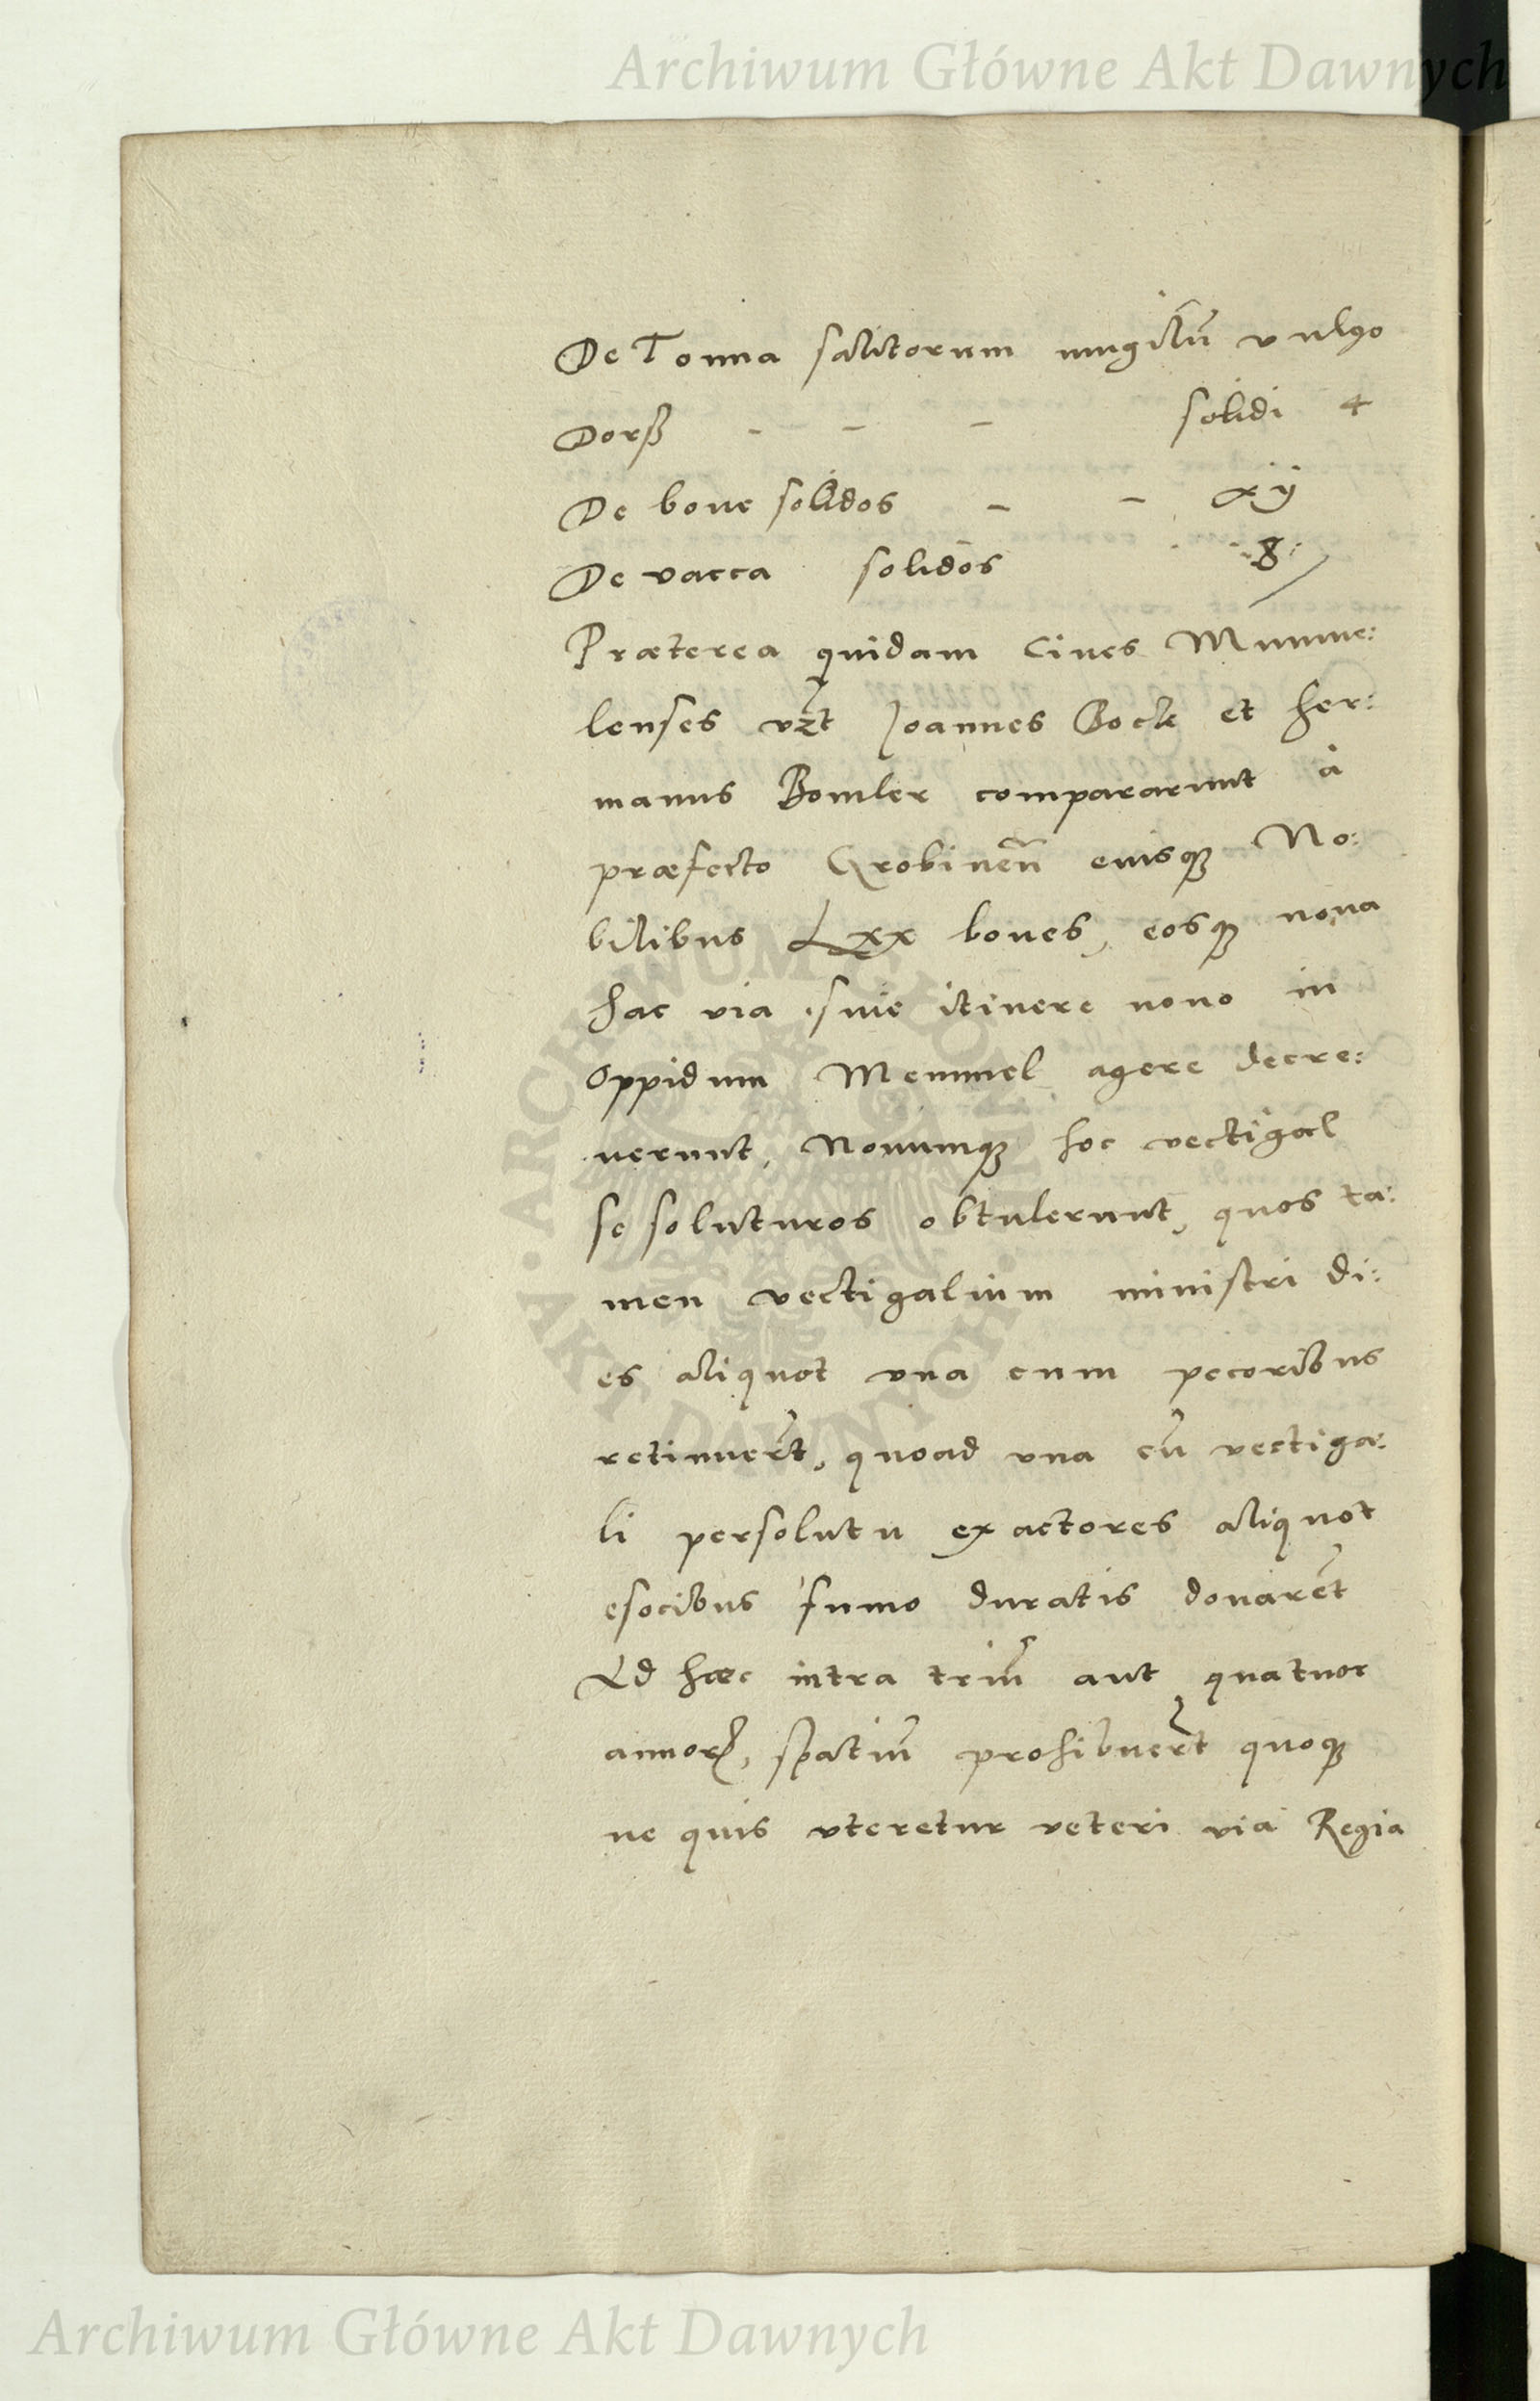 Archiwum Główne Akt Dawnych
De Tonna salitorum mugilū vulgo
Dorß - - - solidi 4
De boue solidos - - xij
De vacca solidos 8
Præterea quidam Ciues Mumme:
lenses vzt Joannes Bocke et Her:
manus Bomler compararunt à
præfecto Grobinen̄ eiusq; No:
bilibus Lxx boues, eosq; noua
hac via, siue itinere nouo in
oppidum Memmel agere decre:
uerunt, Nouumq; hoc vectigal
se soluturos obtulerunt, quos ta:
men vectigalium ministri di:
es aliquot vna cum pecoribus
retinuer̄t, quoad vna cū vectiga:
li persolutu exactores aliquot
esocibus fumo duratis donarēt
Ad hæc intra triū aut quatuor
annorꝝ, spatiū prohibuer̄t quoq;
ne quis vteretur veteri via Regia
ARCHIWUM GŁÓWNE · AKT DAWNYCH ·
Archiwum Główne Akt Dawnych